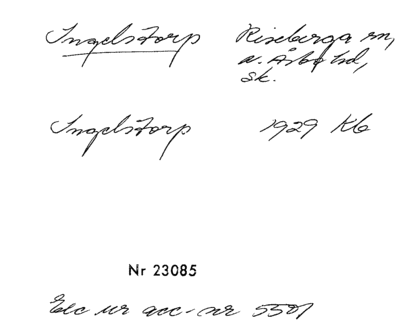 Ingelstorp Riseberga sn,
n. Åsbo hd,
Sk.
Ingelstorp 1929 Kb
Nr 23085
Exc ur acc-nr 5501